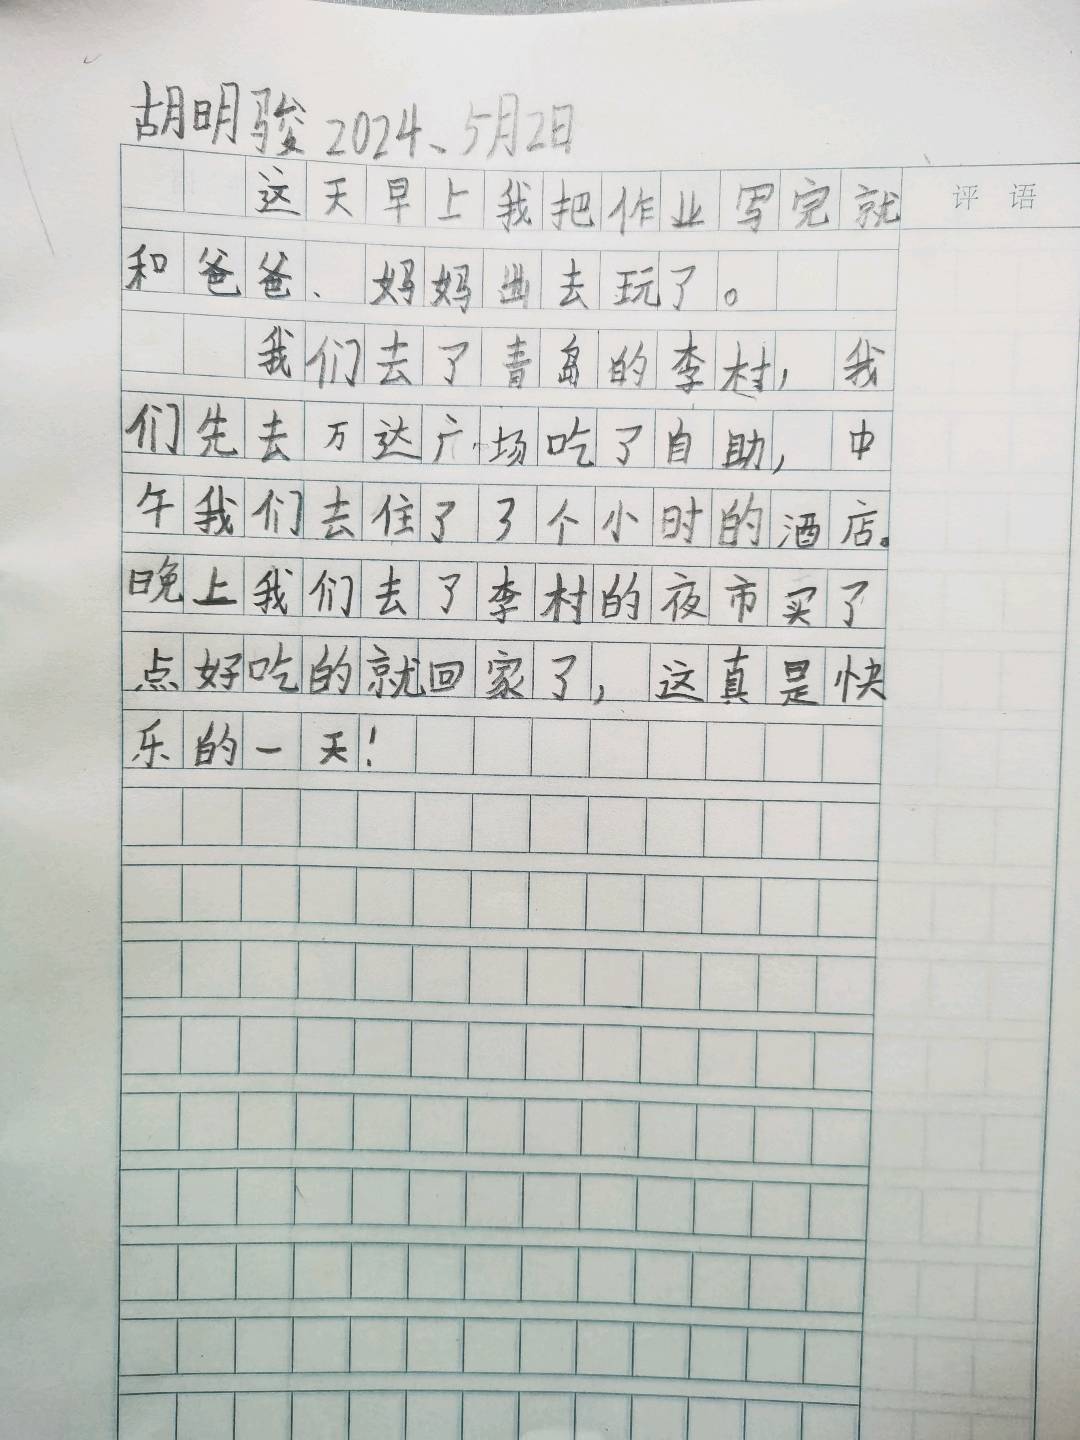 胡明骏 2024、5月2日
这天早上我把作业写完就
评语
和爸爸、妈妈出去玩了。
我们去了青岛的李村，我
们先去万达广场吃了自助，中
午我们去住了3个小时的酒店。
晚上我们去了李村的夜市买了
点好吃的就回家了，这真是快
乐的一天！